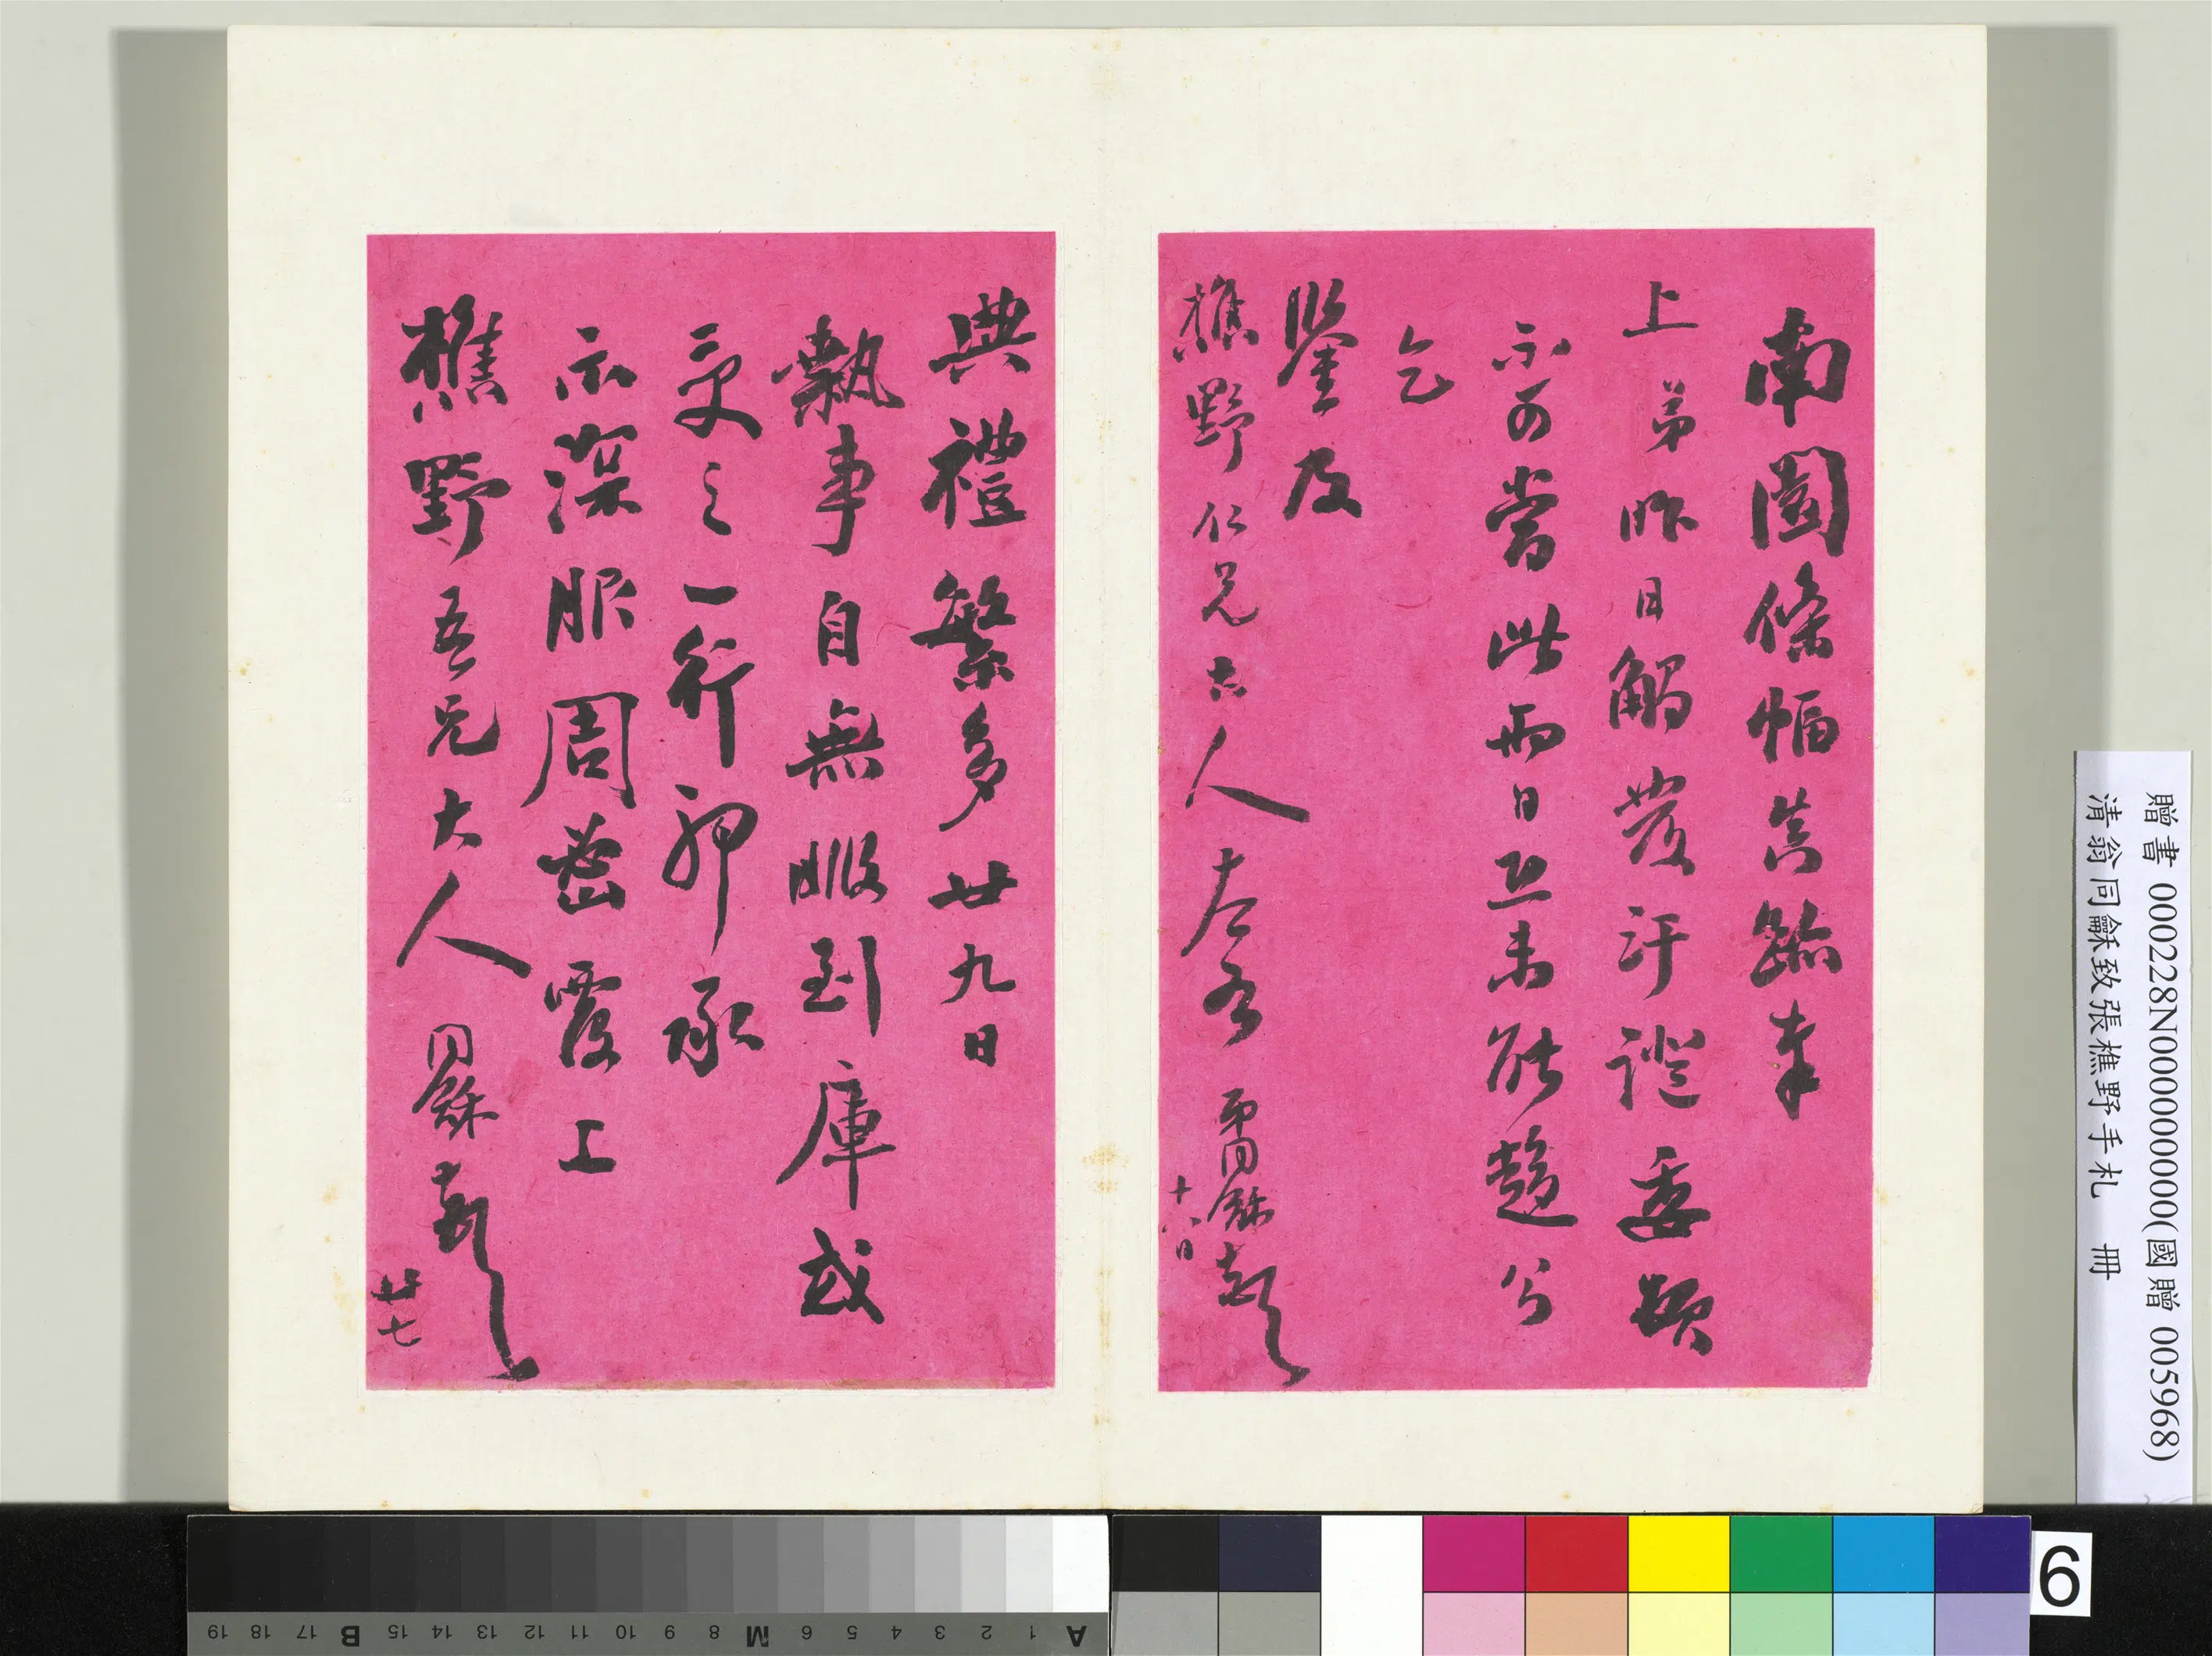 南園條幅真跡奉
上弟昨日觸發汗證委頓
不可當此兩日恐未能趨公
乞
鑒及
樵野仁兄大人左右 弟同龢頓
十八日
典禮繁多廿九日
執事自無暇到庫或
交之一行聊承
示深服周密覆上
樵野吾兄大人 同龢頓
廿七
贈書 000228N000000000(國贈 005968)
清翁同龢致張樵野手札 冊
6
A 1 2 3 4 5 6 M 8 9 10 11 12 13 14 15 B 17 18 19